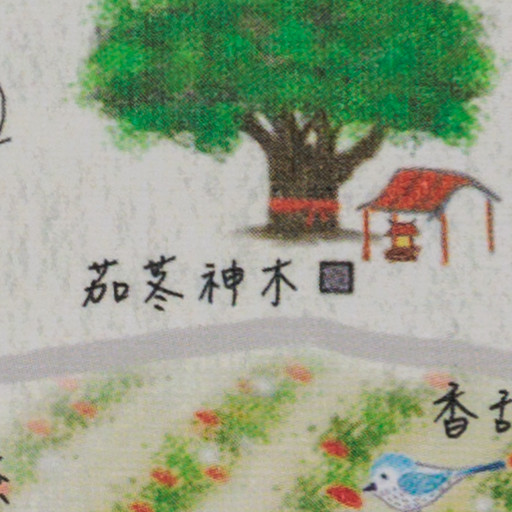 茄苳神木
香甜